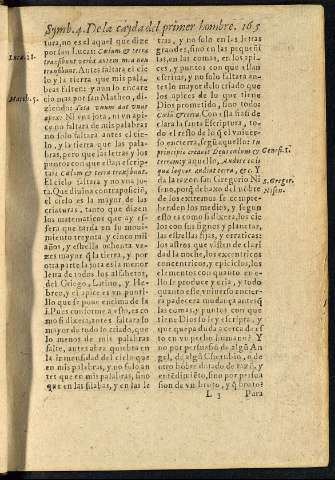 Symb. 4. De la cayda del primer hombre. 165
tura, no es el aquel que dize
por san Lucas: Cælum & terra
transibunt verba autem mea non
transibunt. Antes faltara el cie
lo y la tierra que mis palabras.
Luca. 21.
y aun mayor
cio mas por san Matheo, di-
ziendo: Iota vnum aut vnus
apex: Ni vna jota, ni vn api
ce no faltara de mis palabras
no solo faltara antes el cie-
lo, y la tierra que las mis
palabras, pero que las letras y los
puntos con que estan escrip-
tas: Cælum & terra transibunt.
Matth. 5.
El cielo faltara y no vna jo-
ta. Que diuina contraposició,
el cielo es la mayor de las
criaturas, tanto que dizen
los matematicos que ay es-
fera que tarda en su mo-
uimiento treynta y cinco mil
años, y estrella ochenta ve-
zes mayor q̃ la tierra, y por
otra parte la jota es la menor
letra de todos los alfabetos,
del Griego, Latino, y He-
breo, y el apice es vn punti-
llo que se pone encima de la
i. Pues conforme a esto, es co-
mo si dixera, antes faltara lo
mayor de todo lo criado, que
lo menos de mis palabras
falte, antes abra quiebra en
la immensidad del cielo que
en mis palabras, y no solo an
tes que en mis palabras, sino
que en las silabas, y en las le
tras, y no solo en las letras
grandes, sino en las pequeñi
tas, en las comas, en los api-
ces, y puntos con que estan
escritas, y no solo faltara an-
tes lo mayor de lo criado que
los apices de lo que tiene
Dios prometido, sino todo
Con esta frasis de-
clara la santa Escriptura, to-
do el resto de lo q̃ el vniuer-
so encierra, segū aquello: In
principio creauit Deus cælum &
terram, y aquello, Audite cœli
quæ loquor audiat terra, &c. Y
Genes. 1.
da la razon san Gregorio Ni
seno, porq̃ debaxo del nõbre
S. Gregor.
Nisen.
de los extremos se compre-
henden los medios, y segun
esto es como si dixera, los cie
los con sus signos y planetas,
las estrellas fixas, y erraticas:
los astros que visten de clari
dad la noche, los excentricos
concentricos, y epiciclos, los
elementos con quanto en e-
llos se produce y cria, y todo
quanto este vniuerso encier-
ra padecera mudança antes q̃
las comas, y puntos con que
tiene Dios su ley escripta, y
que pueda duda a cerca de es
to en vn pecho humano? Y
no por persuasion de algū An
gel, de algũ Cherubin, o de
otro hõbre dotado de razõ, y
entēdimiēto, sino por persua
sion de vn bruto, y q̃ bruto?
L 3
Para